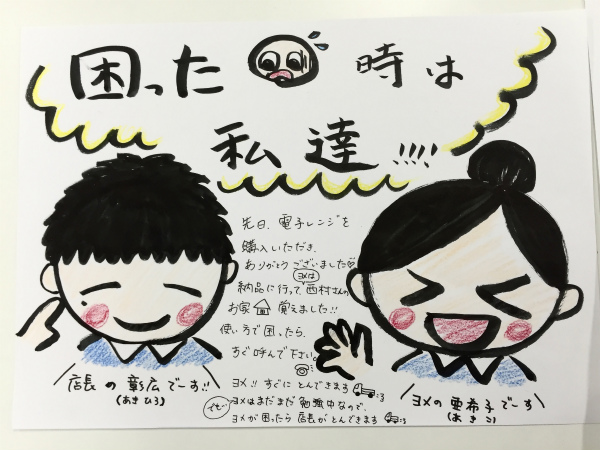 困った 時は
私達 !!!!
先日、電子レンジを
購入いただき、
ありがとうございました♡
ヨメは
納品に行って西村さんの
お家 覚えました!!
使い方で困ったら、
すぐ呼んで下さい。
ヨメ!! すぐにとんできます
でも…
ヨメはまだまだ勉強中なので、
ヨメが困ったら店長がとんできます
店長の彰広でーす!!
(あきひろ)
ヨメの亜希子でーす
(あきこ)